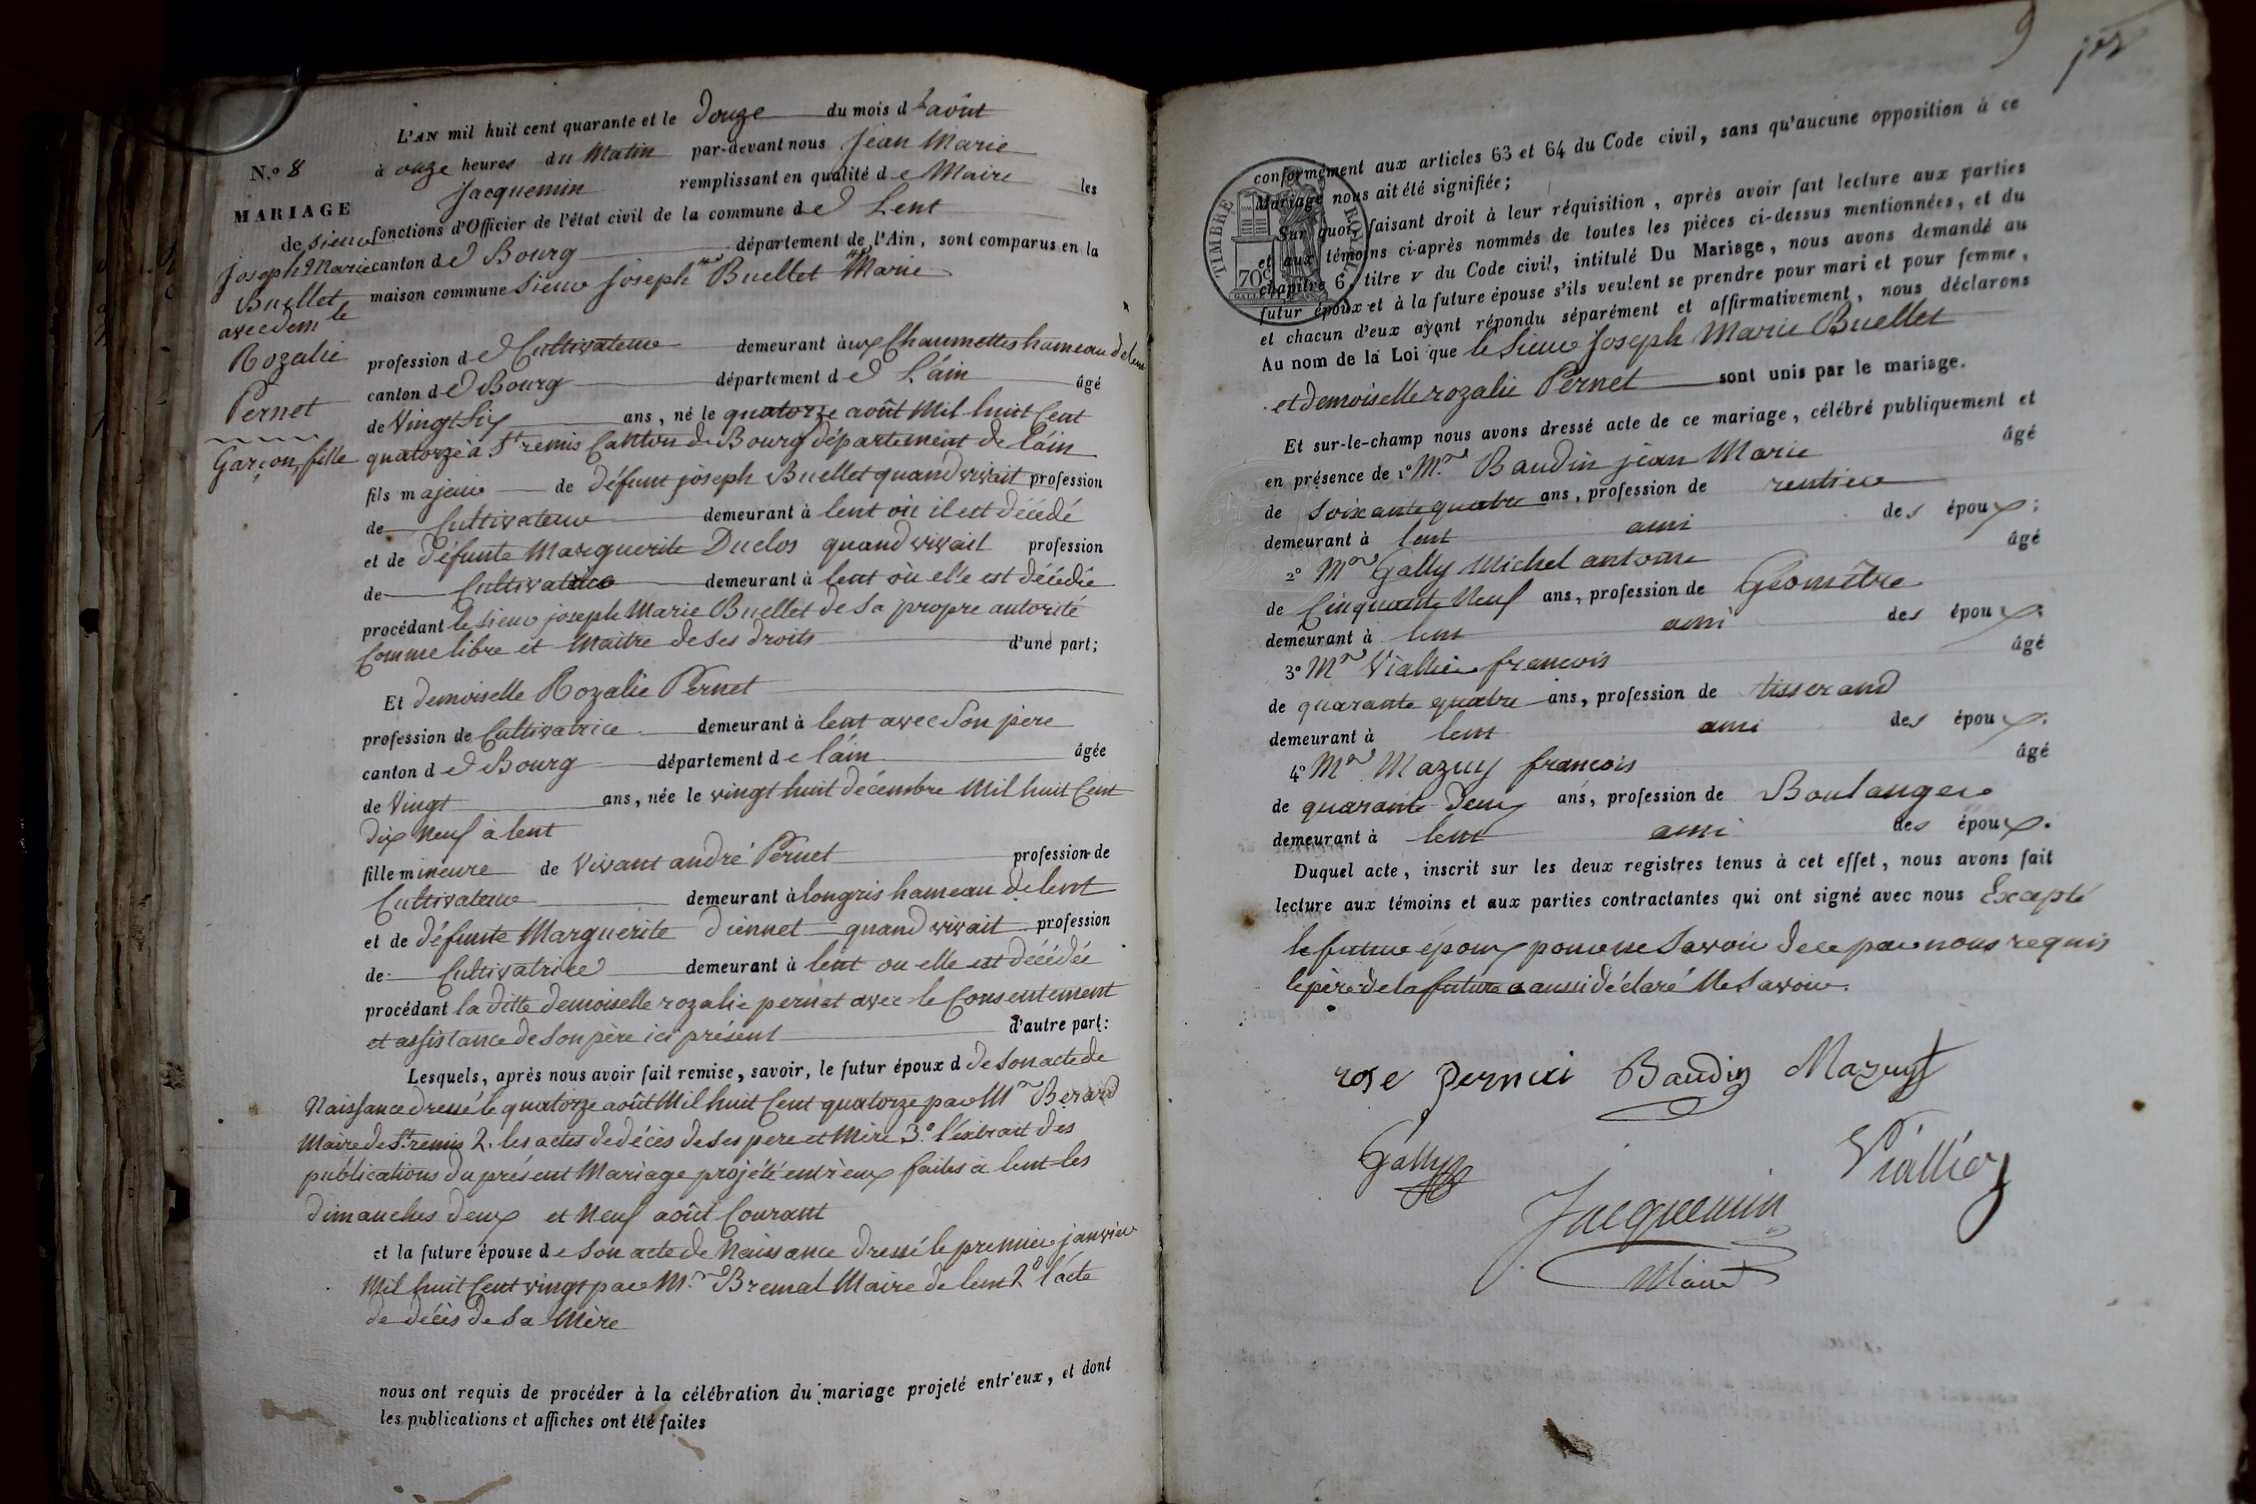 L'AN mil huit cent quarante et le douze du mois d'août
N.º 8
à onze heures du Matin par-devant nous Jean Marie
Jacquemin remplissant en qualité de Maire les
MARIAGE
fonctions d'Officier de l'état civil de la commune de Lent
de sieur
Joseph Marie
Buellet
avec dem.lle
Rozalie
Pernet
Garçon, fille
canton de Bourg département de l'Ain, sont comparus en la
maison commune sieur joseph Buellet Marie
profession de Cultivateur demeurant aux Chaumettes hameau de lent
canton de Bourg département de L'ain âgé
de Vingt Six ans, né le quatorze août Mil huit Cent
quatorze à St remis Canton de Bourg département de l'ain
fils majeur de défunt joseph Buellet quand vivait profession
de Cultivateur demeurant à lent où il est décédé
et de défunte Marguerite Duclos quand vivait profession
de Cultivatrice demeurant à lent où elle est décédée
procédant le sieur joseph Marie Buellet de sa propre autorité
Comme libre et Maitre de ses droits d'une part;
Et demoiselle Rozalie Pernet
profession de Cultivatrice demeurant à lent avec son père
canton de Bourg département de l'ain âgée
de Vingt ans, née le vingt huit décembre Mil huit Cent
dix Neuf à lent
fille mineure de Vivant andré Pernet profession de
Cultivateur demeurant à longris hameau de lent
et de défunte Marguerite diennet quand vivait profession
de Cultivatrice demeurant à lent ou elle est décédée
procédant la ditte demoiselle rozalie pernet avec le Consentement
et assistance de son père ici présent d'autre part:
Lesquels, après nous avoir fait remise, savoir, le futur époux d de son acte de
Naissance dressé le quatorze août Mil huit Cent quatorze par Mr Berard
Maire de St remis 2. les actes de décès de ses pere et Mère 3.º l'extrait des
publications du présent Mariage projété entr'eux faites à lent les
dimanches deux et Neuf août Courant
et la future épouse de son acte de Naissance dressé le premier janvier
Mil huit Cent vingt par Mr Bremal Maire de lent 2º l'acte
de décès de sa Mère
nous ont requis de procéder à la célébration du mariage projeté entr'eux, et dont
les publications et affiches ont été faites
9
conformément aux articles 63 et 64 du Code civil, sans qu'aucune opposition à ce
Mariage nous ait été signifiée;
TIMBRE ROYAL
70c
Sur quoi, faisant droit à leur réquisition, après avoir fait lecture aux parties
et aux témoins ci-après nommés de toutes les pièces ci-dessus mentionnées, et du
chapitre 6, titre v du Code civil, intitulé Du Mariage, nous avons demandé au
futur époux et à la future épouse s'ils veulent se prendre pour mari et pour femme,
et chacun d'eux ayant répondu séparément et affirmativement, nous déclarons
Au nom de la Loi que le Sieur Joseph Marie Buellet
et demoiselle rozalie Pernet sont unis par le mariage.
Et sur-le-champ nous avons dressé acte de ce mariage, célébré publiquement et
en présence de 1º Mr Baudin jean Marie âgé
de soixante quatre ans, profession de rentier
demeurant à lent ami des époux;
2º Mr Gally Michel antoine âgé
de Cinquante Neuf ans, profession de Géomètre
demeurant à lent ami des époux
3º Mr Viallier francois âgé
de quarante quatre ans, profession de tisserand
demeurant à lent ami des époux.
4º Mr Mazuy francois âgé
de quarante deux ans, profession de Boulanger
demeurant à lent ami des époux.
Duquel acte, inscrit sur les deux registres tenus à cet effet, nous avons fait
lecture aux témoins et aux parties contractantes qui ont signé avec nous Excepté
le futur époux pour ne savoir de ce par nous requis
le père de la future a aussi déclaré Ne Savoir.
rose pernei Baudin Mazuy
Gally Viallier
Jacquemin
Maire